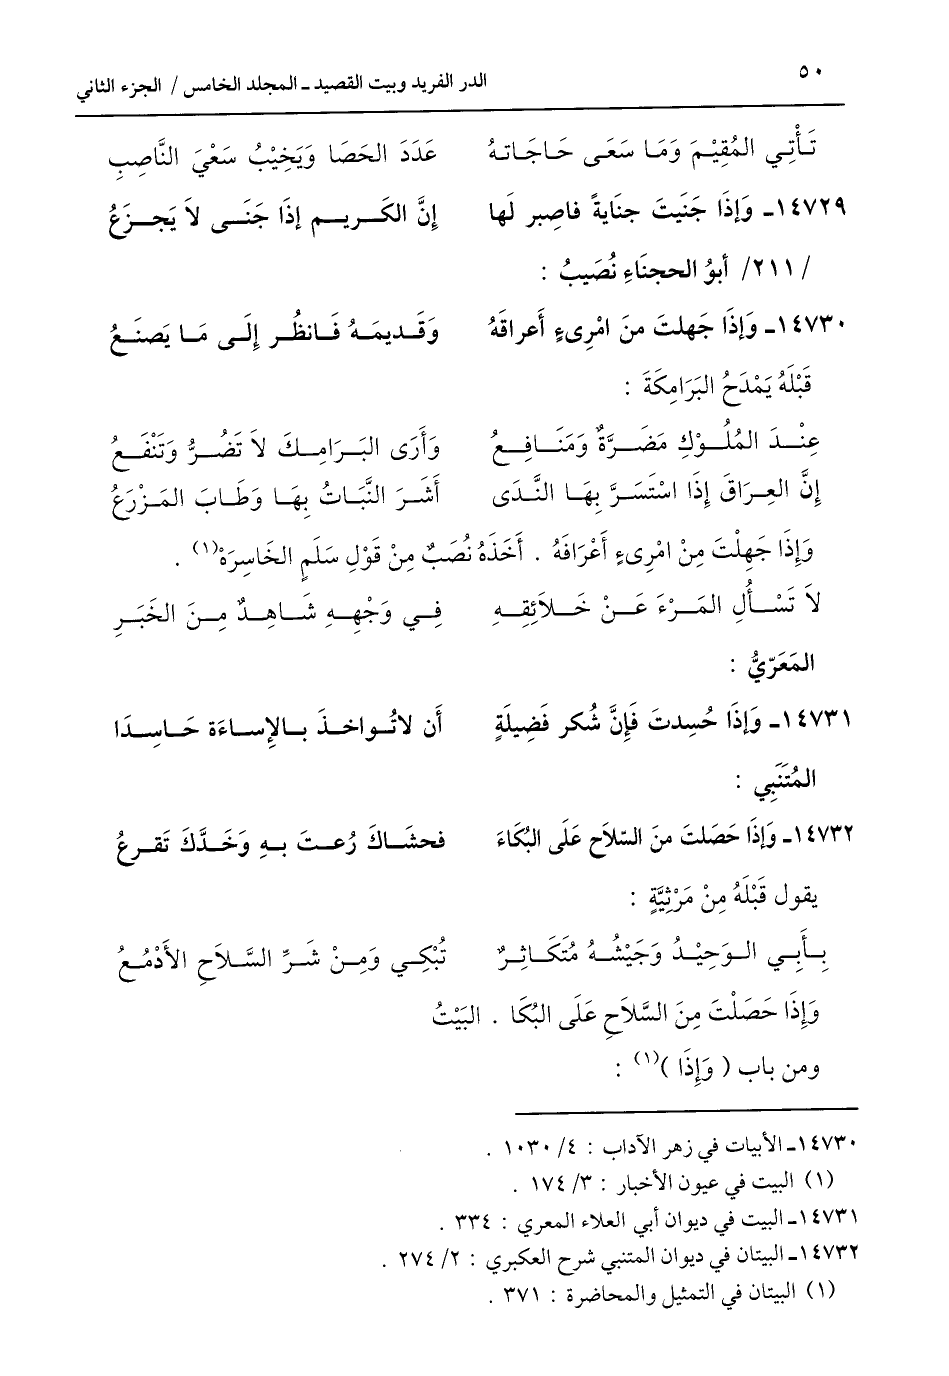 ٥٠
الدر الفريد وبيت القصيد ـ المجلد الخامس / الجزء الثاني
تَأْتِي المُقِيْمَ وَمَا سَعَى حَاجَاتهُ عَدَدَ الحَصَا وَيَخِيْبُ سَعْيَ النَّاصِبِ
١٤٧٢٩ـ وَإِذَا جَنَيتَ جنايةً فاصبر لَها إِنَّ الكَريم إِذَا جَنَى لاَ يَجزَعُ
/ ٢١١/ أبوُ الحجنَاءِ نُصَيبُ :
١٤٧٣٠ـ وَإِذَا جَهلتَ منَ امْرِىءٍ أَعراقَهُ وَقَديمَهُ فَانظُر إِلَى مَا يَصنَعُ
قَبْلَهُ يَمْدَحُ البَرَامِكَةَ :
عِنْدَ المُلُوْكِ مَضَرَّةٌ وَمَنَافِعُ وَأَرَى البَرَامِكَ لاَ تَضُرُّ وَتَنْفَعُ
إِنَّ العِرَاقَ إِذَا اسْتَسَرَّ بِهَا النَّدَى أَشَرَ النَّبَاتُ بِهَا وَطَابَ المَزْرَعُ
وَإِذَا جَهِلْتَ مِنْ امْرِىءٍ أَعْرَافَهُ . أَخَذَهُ نُصَبٌ مِنْ قَوْلِ سَلَمِ الخَاسِرَهْ(١) .
لاَ تَسْأُلِ المَرْءَ عَنْ خَلاَئِقِهِ فِي وَجْهِهِ شَاهِدٌ مِنَ الخَبَرِ
المَعَرّيُّ :
١٤٧٣١ـ وَإِذَا حُسِدتَ فَإِنَّ شُكر فَضِيلَةٍ أَن لاتُواخذَ بالإِساءَة حَاسِدَا
المُتَنَبِي :
١٤٧٣٢ـ وَإِذَا حَصَلتَ منَ السّلاَح عَلَى البُكَاءَ فحشَاكَ رُعتَ بهِ وَخَدَّكَ تَقرعُ
يقول قَبْلَهُ مِنْ مَرْثِيَّةٍ :
بِأَبِي الوَحِيْدُ وَجَيْشُهُ مُتَكَاثِرٌ تُبْكِي وَمِنْ شَرِّ السَّلاَحِ الأَدْمُعُ
وَإِذَا حَصَلْتَ مِنَ السَّلاَحِ عَلَى البُكَا . البَيْتُ
ومن باب ( وَإِذَا )(١) :
١٤٧٣٠ـ الأبيات في زهر الآداب : ٤/ ١٠٣٠ .
(١) البيت في عيون الأخبار : ٣/ ١٧٤ .
١٤٧٣١ـ البيت في ديوان أبي العلاء المعري : ٣٣٤ .
١٤٧٣٢ـ البيتان في ديوان المتنبي شرح العكبري : ٢/ ٢٧٤ .
(١) البيتان في التمثيل والمحاضرة : ٣٧١ .